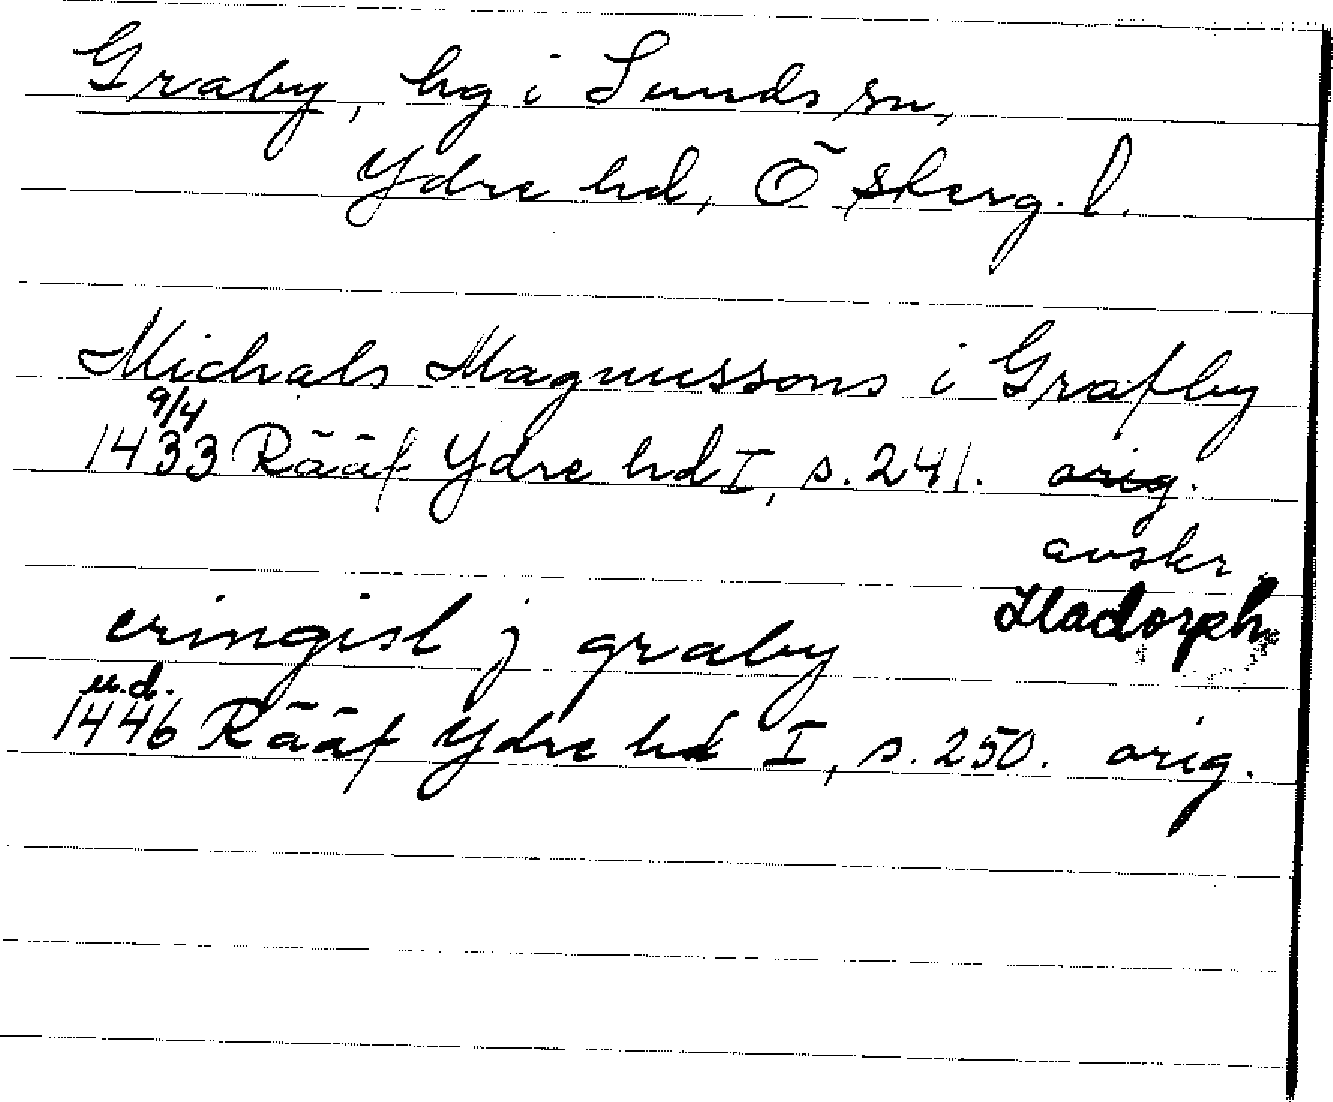 Graby, hg i Sunds sn,
Ydre hd, Ö Skerg. l.
Michals Magnussons i Grafby
9/4
1433 Rääf Ydre hd I, s. 241. orig.
avskr.
Hadorph
eringisl j graby
u.d.
1446 Rääf Ydre hd I, s. 250. orig.